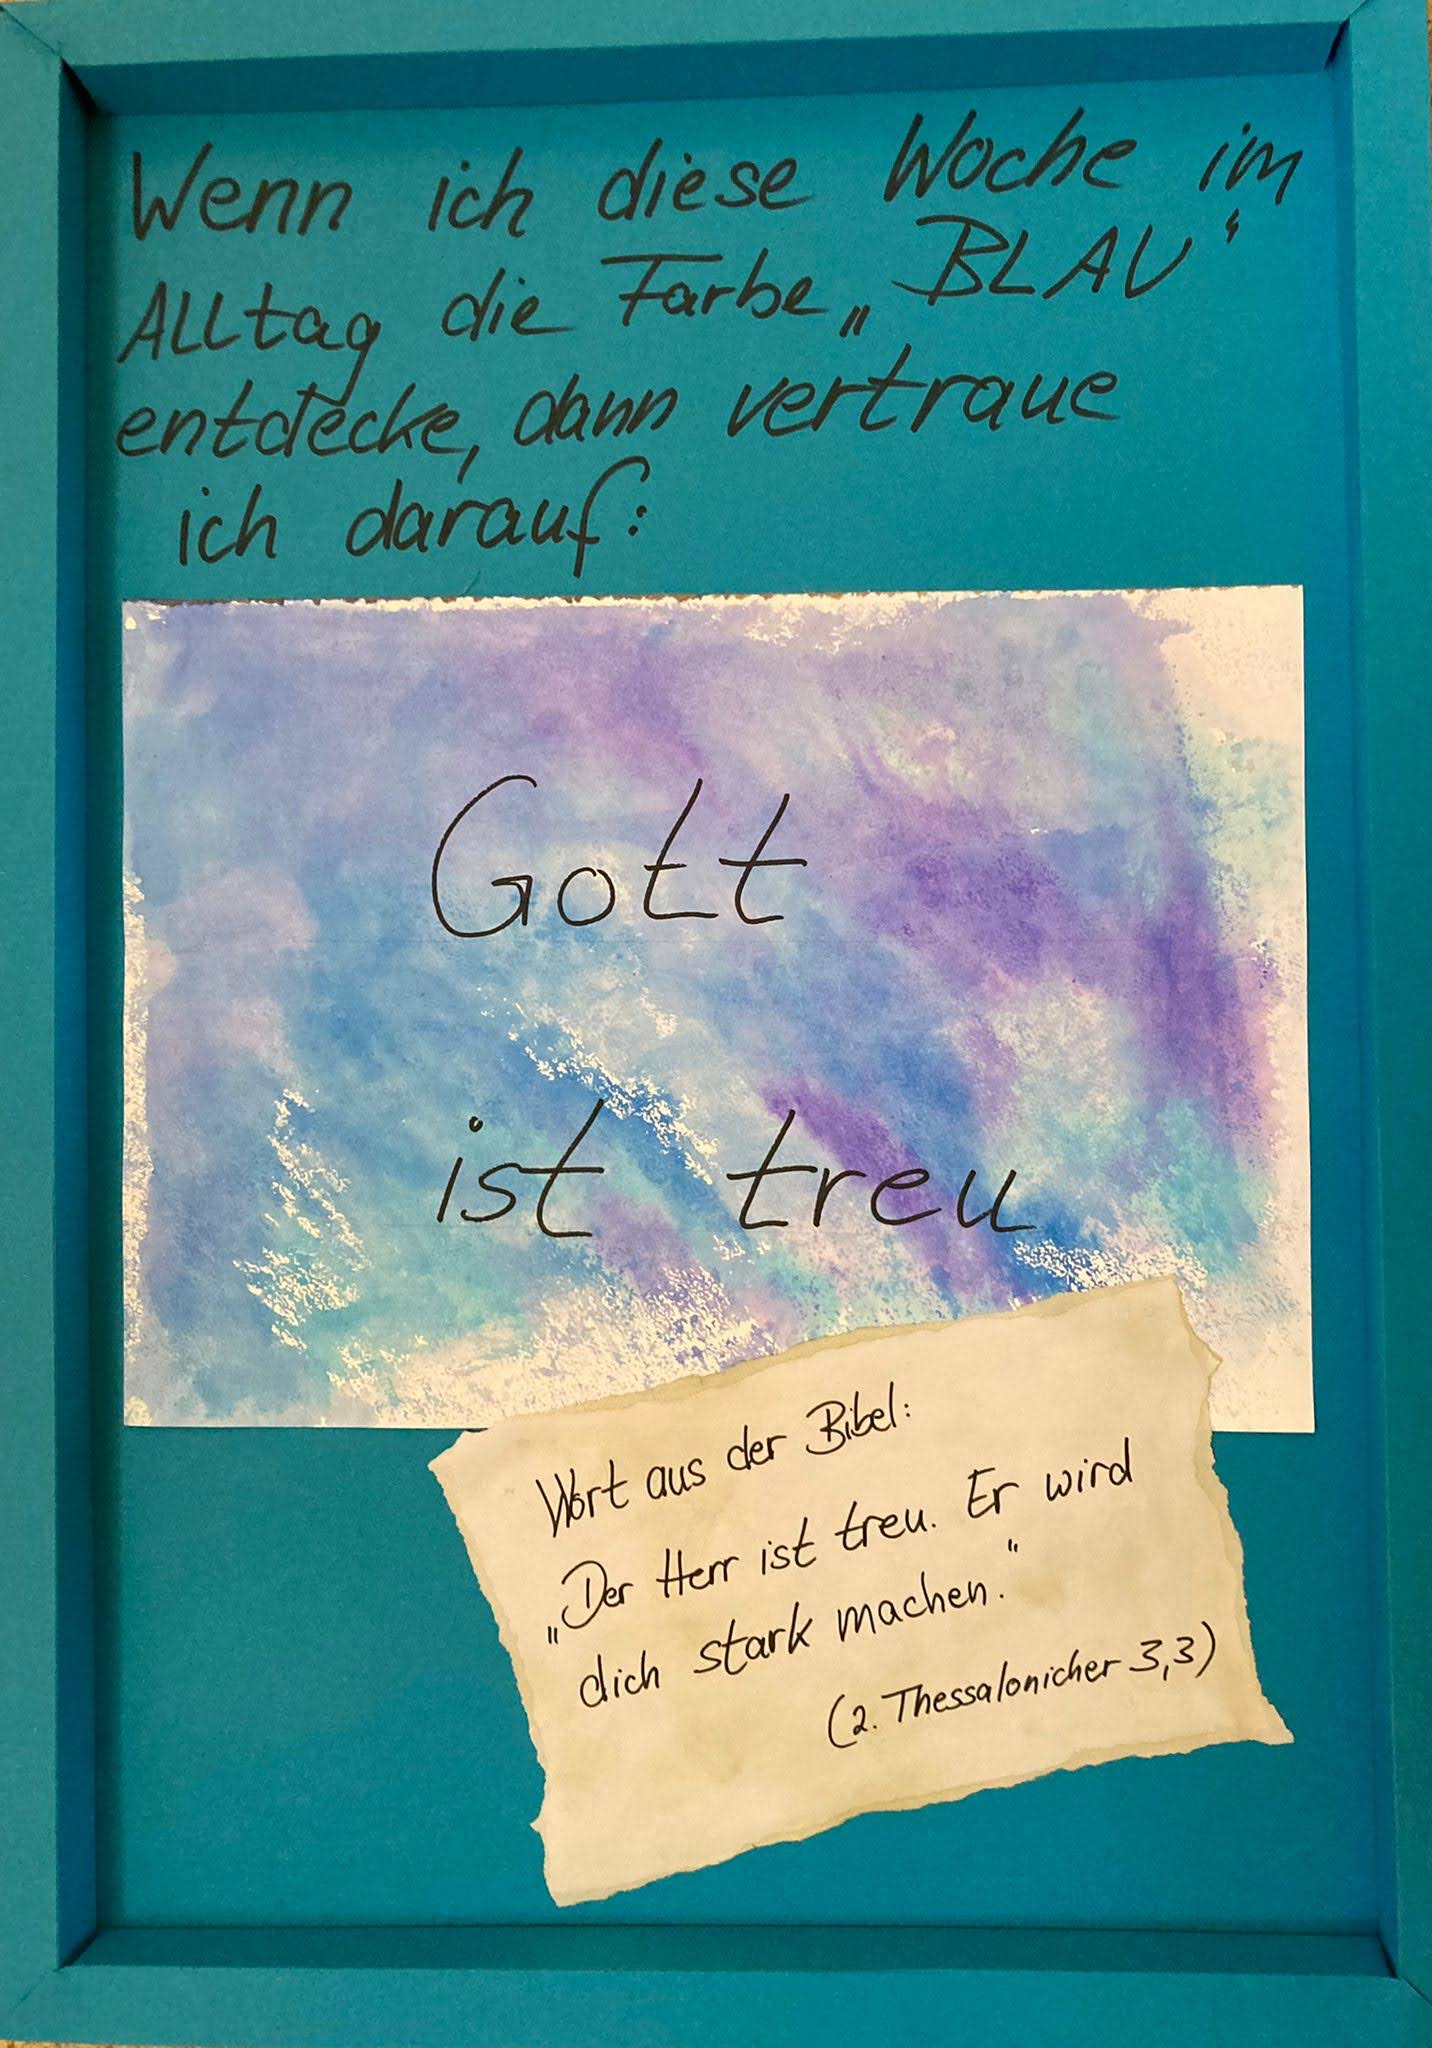 Wenn ich diese Woche im
Alltag die Farbe „BLAU“
entdecke, dann vertraue
ich darauf:
Gott
ist treu
Wort aus der Bibel:
„Der Herr ist treu. Er wird
dich stark machen."
(2. Thessalonicher 3,3)